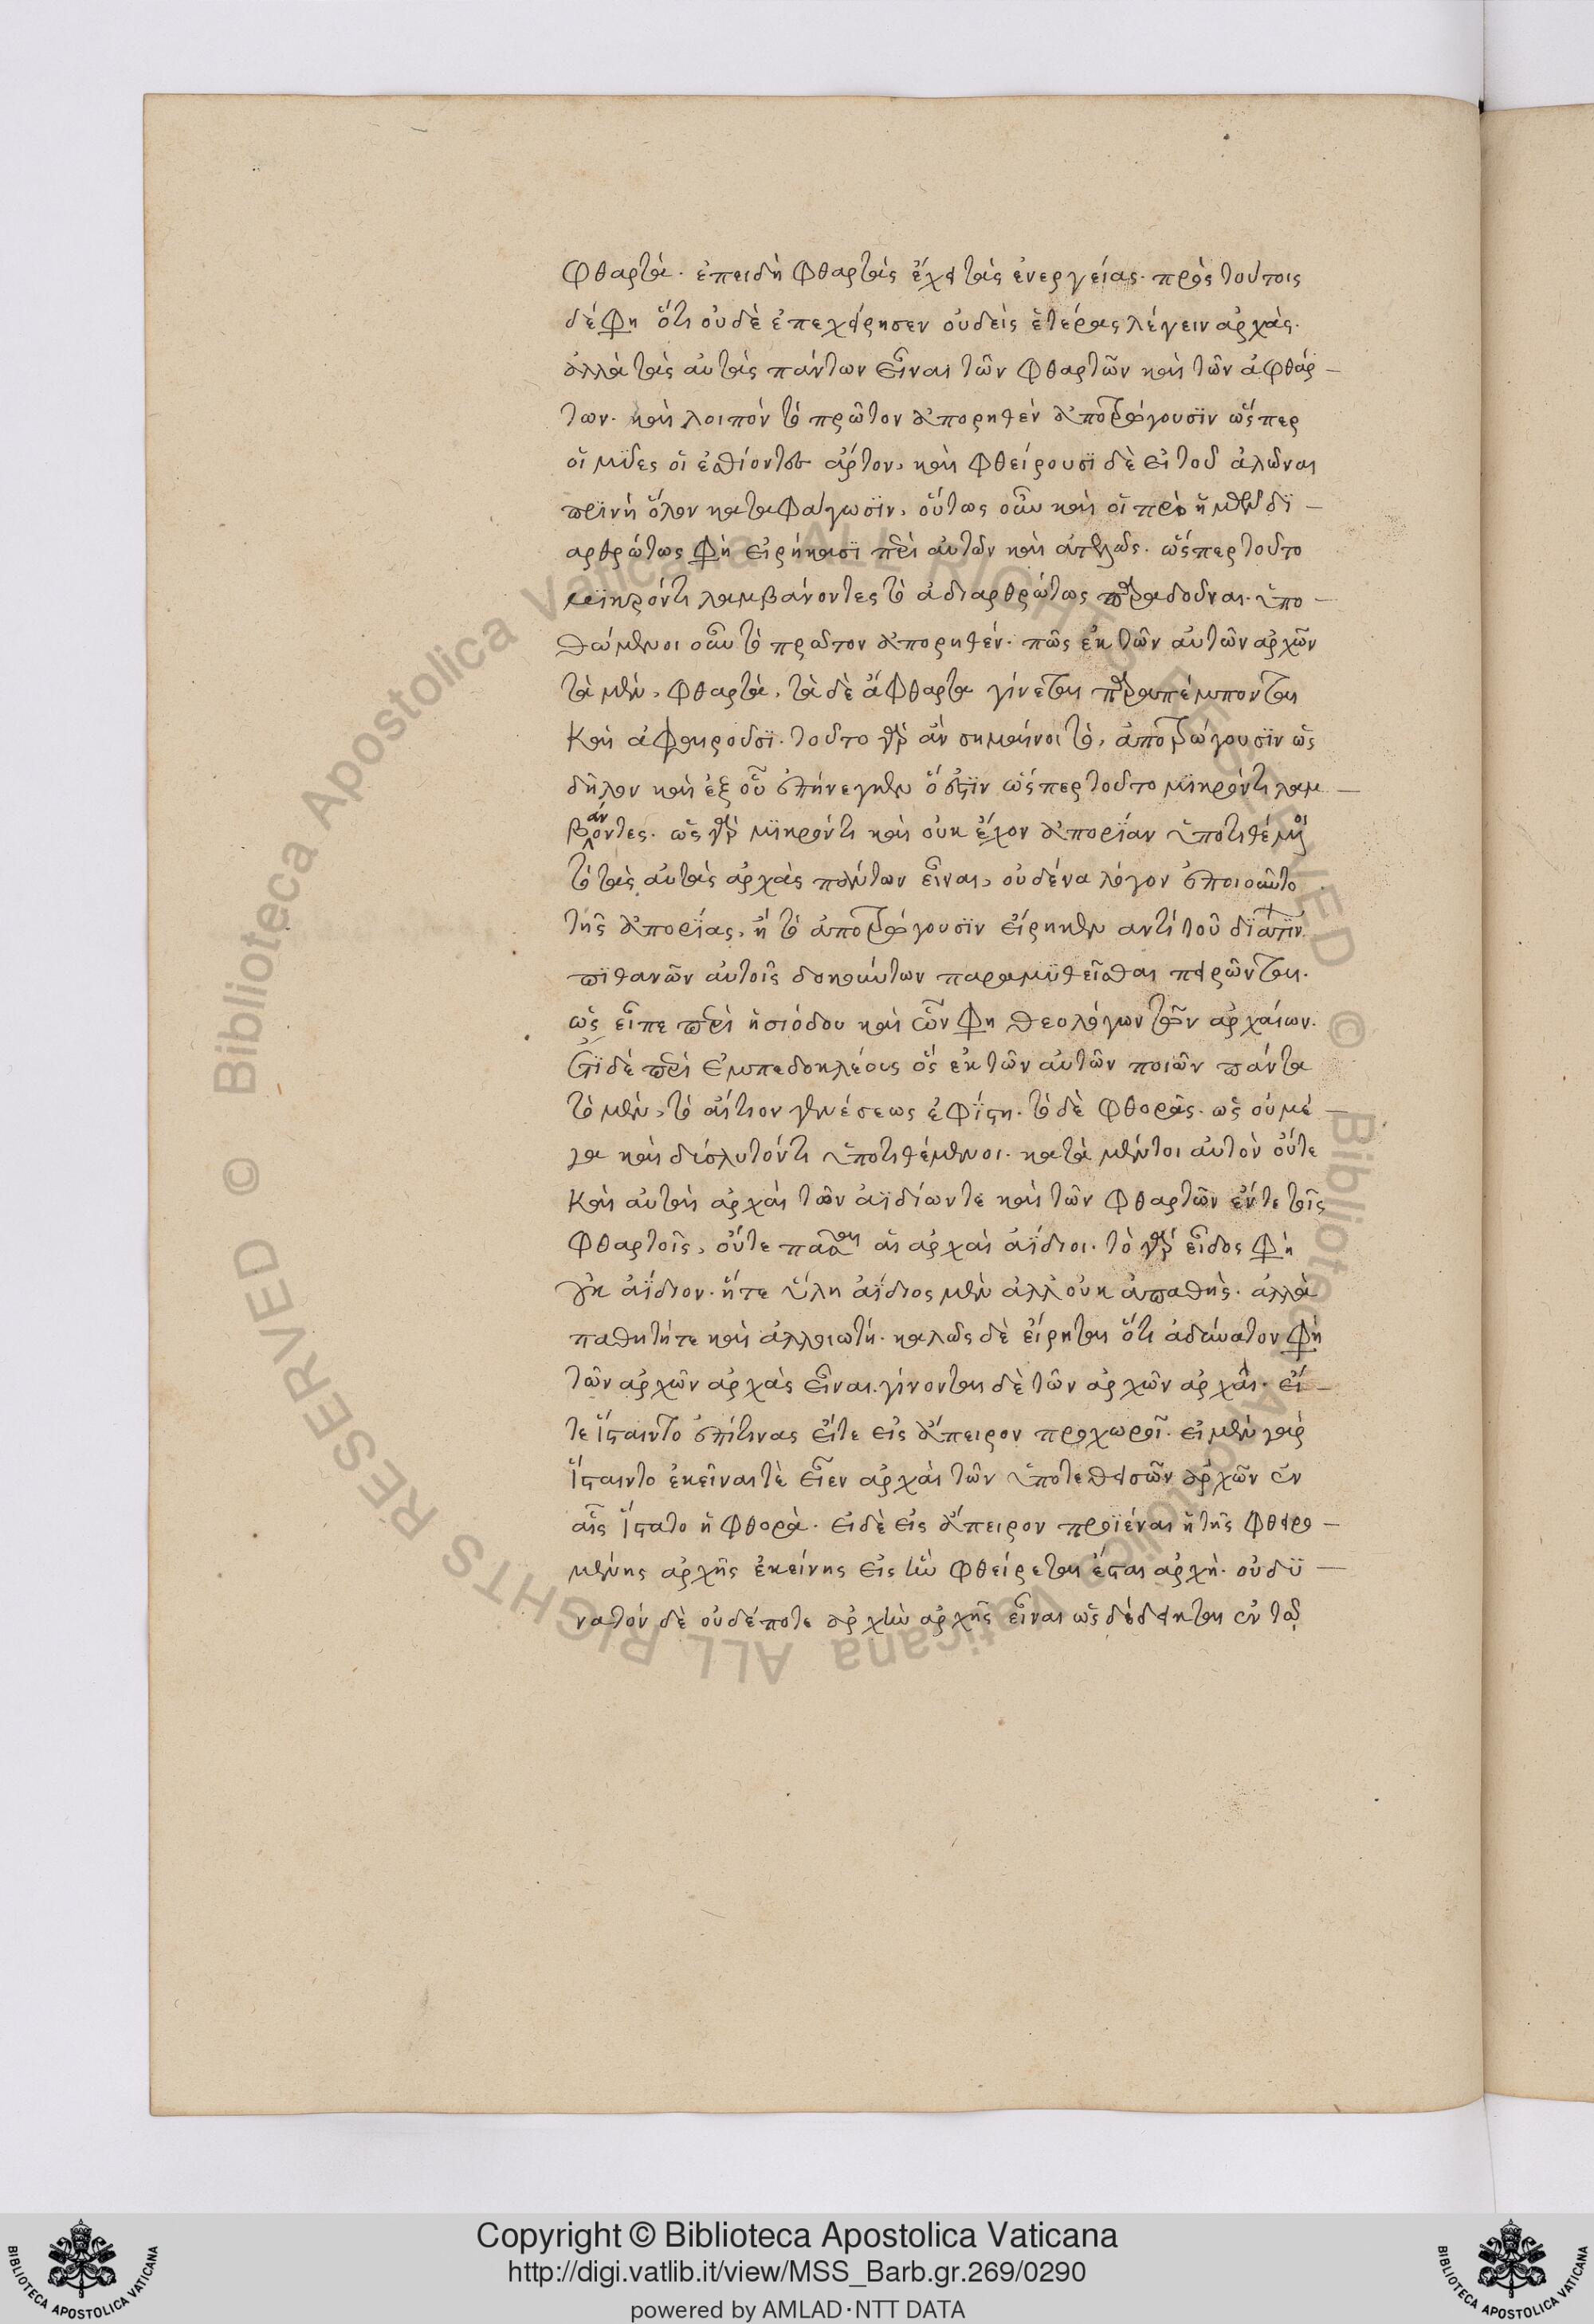 φθαρτά. ἐπειδὴ φθαρτὰς ἔχει τὰς ἐνεργείας. πρὸς τούτοις
δέ φη ὅτι οὐδὲ ἐπεχείρησεν οὐδεὶς ἑτέρας λέγειν ἀρχάς.
ἀλλὰ τὰς αὐτὰς πάντων εἶναι τῶν φθαρτῶν καὶ τῶν ἀφθάρ–
των. καὶ λοιπόν τὸ πρῶτον ἀπορηθὲν ἀποτρώγουσϊν ὥσπερ
οἱ μύες οἱ ἐσθίοντες ἄρτον, καὶ φθείρουσϊ δὲ εἰ τοῦ ἁλῶναι
πρϊνὴ ὅλον καταφάγωσϊν, οὕτως οὖν καὶ οἱ πρὸ ἡμῶν δϊ–
αρθρώτως φὴ εἰρήκασϊ περὶ αὐτῶν καὶ ἁπλῶς. ὥσπερ τοῦτο
μϊκρόντι λαμβάνοντες τὸ ἀδιαρθρώτως παραδοῦναι. ὑπο–
θώμενοι οὖν τὸ πρῶτον ἀπορηθέν. πῶς ἐκ τῶν αὐτῶν ἀρχῶν
τὰ μὲν, φθαρτὰ, τὰ δὲ ἄφθαρτα γίνεται παραπέμπονται
καὶ ἀφαιροῦσϊ. τοῦτο γὰρ ἂν σημαίνοι τὸ, ἀποτρώγουσϊν ὡς
δῆλον καὶ ἐξ οὗ ἐπήνεγκεν ὅ ἐστϊν ὥσπερ τοῦτο μϊκρόντι λαμ–
βάνοντες. ὡς γὰρ μϊκρόντι καὶ οὐκ ἔχον ἀπορΐαν ὑποτιθέμενοι
τὸ τὰς αὐτὰς ἀρχὰς πάντων εἶναι, οὐδένα λόγον ἐποιοῦντο
τῆς ἀπορΐας, ἢ τὸ ἀποτρώγουσϊν εἴρηκεν ἀντὶ τοῦ δϊά τϊν
πϊθανῶν αὐτοῖς δοκούντων παραμυθεῖσθαι πειρῶνται.
ὡς εἶπε περὶ ἡσιόδου καὶ ὧν φη θεολόγων τῶν ἀρχαίων.
ἔτϊ δὲ περὶ Ἐμπεδοκλέους ὃς ἐκ τῶν αὐτῶν ποιῶν πάντα
τὸ μὲν, τὸ αἴτιον γενέσεως ἐφΐστη. τὸ δὲ φθορᾶς. ὡς οὐ μέ–
γα καὶ δύσλυτόντι ὑποτιθέμενοι. κατὰ μέντοι αὐτὸν οὔτε
καὶ αὐταὶ ἀρχαὶ τῶν ἀϊδίων τε καὶ τῶν φθαρτῶν ἔν τε τοῖς
φθαρτοῖς, οὔτε πᾶσαι αἱ ἀρχαὶ ἀΐδιοι. τὸ γὰρ εἶδος φὴ
οὐκ ἀΐδιον. ἥτε ὕλη ἀΐδιος μὲν ἀλλ' οὐκ ἀπαθὴς. ἀλλὰ
παθητήτε καὶ ἀλλοιωτή. καλῶς δὲ εἴρηται ὅτι ἀδύνατον φὴ
τῶν ἀρχῶν ἀρχὰς εἶναι. γίνονται δὲ τῶν ἀρχῶν ἀρχαὶ. εἴ–
τε ἵσταιντο ἐπί τινας εἴτε εἰς ἄπειρον προχωροῖ. εἰ μὲν γὰρ
ἵσταιντο ἐκεῖναι τὲ εἶεν ἀρχαὶ τῶν ὑποτεθεισῶν ἀρχῶν ἐν
αἷς ἵστατο ἡ φθορὰ. εἰ δὲ εἰς ἄπειρον προϊέναι ἡ τῆς φθειρο–
μένης ἀρχῆς ἐκείνης εἰς ἣν φθείρεται ἔσται ἀρχὴ. οὐ δυ–
νατόν δὲ οὐδέποτε ἀρχὴν ἀρχῆς εἶναι ὡς δέδεικται ἐν τῷ
Copyright © Biblioteca Apostolica Vaticana
http://digi.vatlib.it/view/MSS_Barb.gr.269/0290
powered by AMLAD·NTT DATA